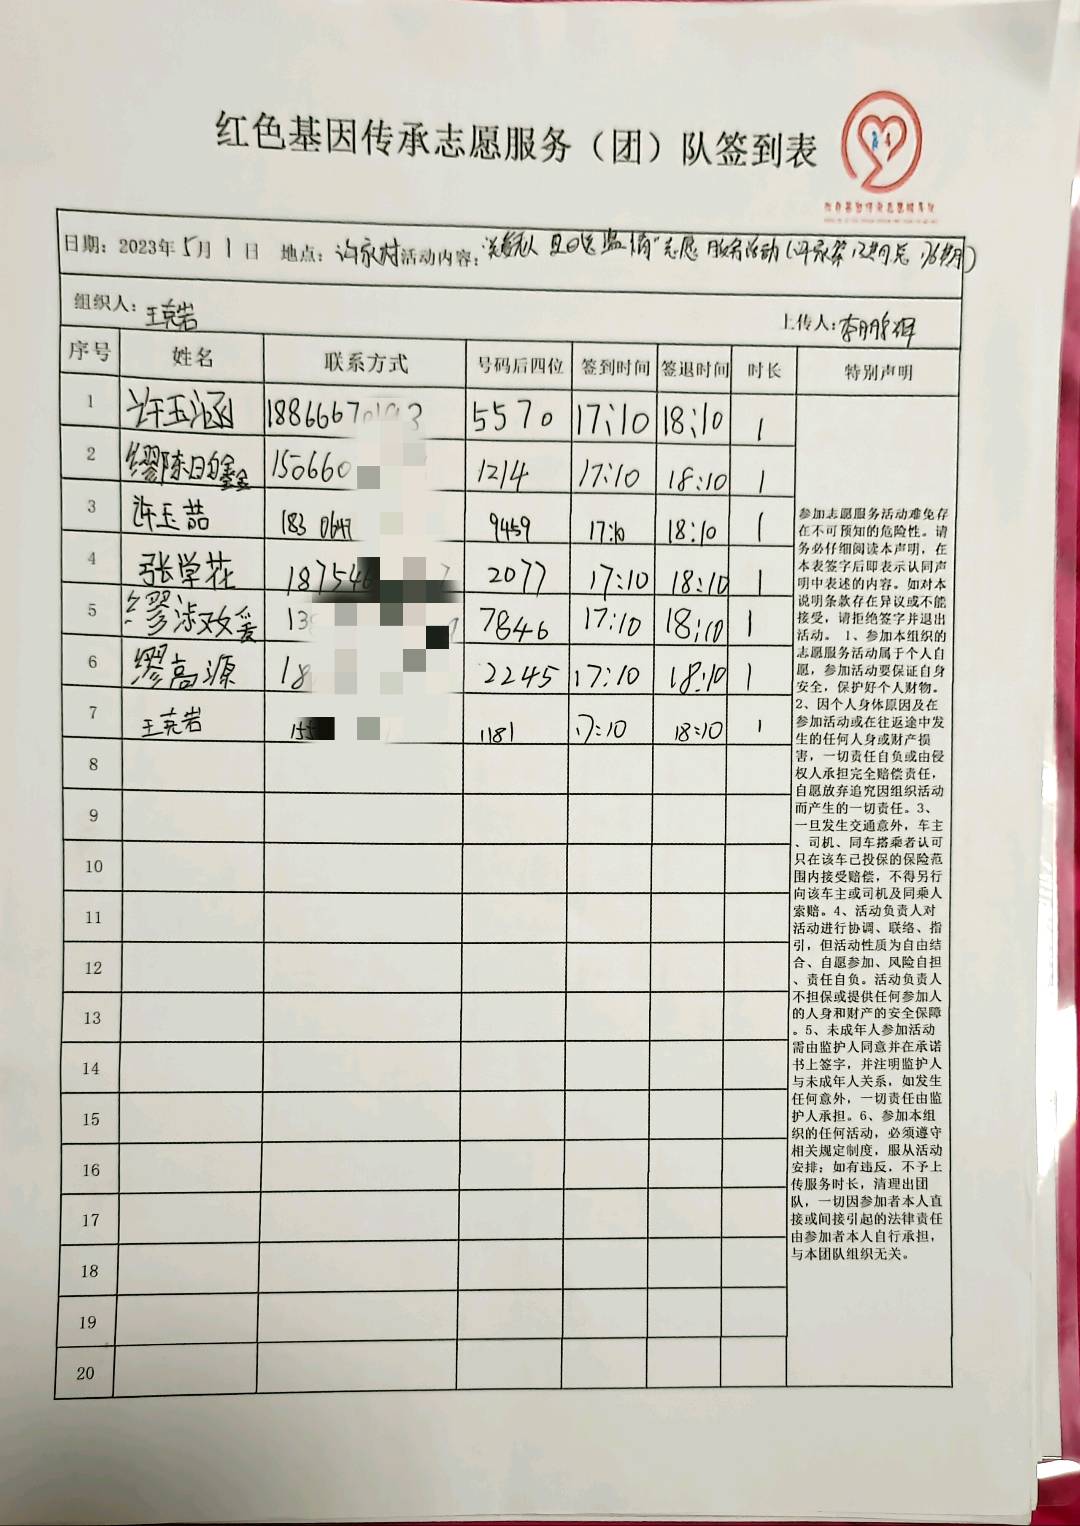 红色基因传承志愿服务（团）队签到表
日期：2023年5月1日 地点：许家村 活动内容： 志愿服务活动
组织人：王克岩 上传人：李鹏辉
序号 姓名 联系方式 号码后四位 签到时间 签退时间 时长 特别声明
1 许玉涵 18866670 3 5570 17:10 18:10 1
2 缪陈日鑫 150660 1214 17:10 18:10 1
3 许玉喆 183 9459 17:10 18:10 1
4 张学花 18754 7 2077 17:10 18:10 1
5 缪淑媛 13 7846 17:10 18:10 1
6 缪高源 18 2245 17:10 18:10 1
7 王克岩 155 1181 17:10 18:10 1
8
9
10
11
12
13
14
15
16
17
18
19
20
参加志愿服务活动难免存
在不可预知的危险性。请
务必仔细阅读本声明，在
本表签字后即表示认同声
明中表述的内容。如对本
说明条款存在异议或不能
接受，请拒绝签字并退出
活动。 1、参加本组织的
志愿服务活动属于个人自
愿，参加活动要保证自身
安全，保护好个人财物。
2、因个人身体原因及在
参加活动或在往返途中发
生的任何人身或财产损
害，一切责任自负或由侵
权人承担完全赔偿责任，
自愿放弃追究因组织活动
而产生的一切责任。3、
一旦发生交通意外，车主
、司机、同车搭乘者认可
只在该车已投保的保险范
围内接受赔偿，不得另行
向该车主或司机及同乘人
索赔。4、活动负责人对
活动进行协调、联络、指
引，但活动性质为自由结
合、自愿参加、风险自担
、责任自负。活动负责人
不担保或提供任何参加人
的人身和财产的安全保障
。5、未成年人参加活动
需由监护人同意并在承诺
书上签字，并注明监护人
与未成年人关系，如发生
任何意外，一切责任由监
护人承担。6、参加本组
织的任何活动，必须遵守
相关规定制度，服从活动
安排；如有违反，不予上
传服务时长，清理出团
队，一切因参加者本人直
接或间接引起的法律责任
由参加者本人自行承担，
与本团队组织无关。